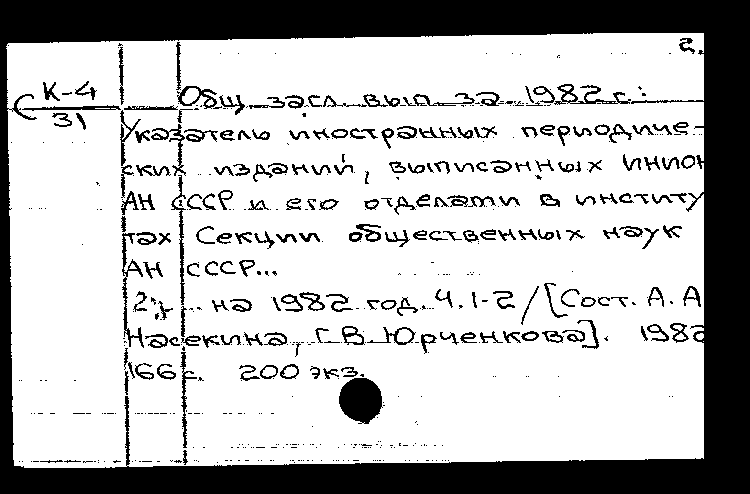 2.
К-4
31
Общ. загл. вып. за 1982 г.:
Указатель иностранных периодиче-
ских изданий, выписанных ИНИОН
АН СССР и его отделами в институ
тах Секции общественных наук
АН СССР...
... на 1982 год. Ч. 1-2 / [Сост. А. А.
Насекина, Г. В. Юрченкова]. 1982
166 с. 200 экз.